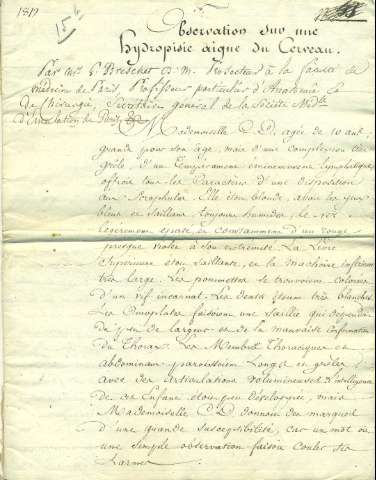 1812
15e
Observation sur une
hydropisie aigue du Cerveau.
Par Mr G. Breschet D. M. Prosecteur à la faculté de
médecine de Paris, Professeur particulier d'Anatomie &
de chirurgie, Secrétaire général de la Société Médle
d'Emulation de Paris &a
Mademoiselle C. D. agée de 10 ans;
grande pour son age, mais d'une Complexion très
grêle, d'un Tempérament éminemment lymphatique
offrait tous les Caractères d'une disposition
aux Scrophules. Elle étoit blonde, avoit les yeux
bleus et Saillans, toujours humides, le nez
légèrement épaté et constamment d'un rouge
presque violet à son extrémité. La Lèvre
Supérieure étoit Saillante, et la machoire inférieure
très large. Les pommettes se trouvoient colorées
d'un vif incarnat. Les dents étoient très blanches.
Les Omoplates faisoient une Saillie qui dépendoit
du peu de largeur et de la mauvaise Conformation
du Thorax. Les Membres Thoraciques et
abdominaux paroissoient Longs et grêles
avec des articulations volumineuses. L'intelligence
de cet Enfant étoit peu développée, mais
Mademoiselle C. D. donnoit des marques
d'une grande Susceptibilité, car un mot ou
une Simple observation faisoit Couler ses
Larmes